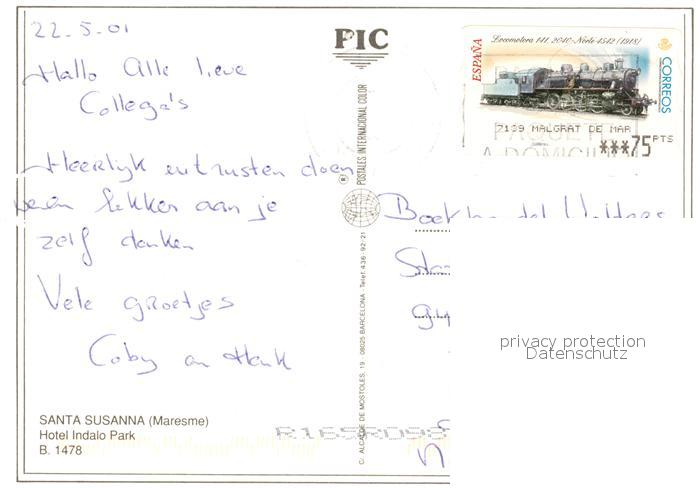 22-5-01
Hallo Alle lieve
Collega's
Heerlijk uitrusten doen
weer lekker aan je
zelf denken
Vele groetjes
Coby en Henk
SANTA SUSANNA (Maresme)
Hotel Indalo Park
B. 1478
FIC
POSTALES INTERNACIONAL COLOR
C/ ALCALDE DE MOSTOLES, 19 - 08025 BARCELONA - Telef: 436-92-21
Locomotora 141, 2040-Norte 4542 (1918)
ESPAÑA
CORREOS
7139 MALGRAT DE MAR
***75 PTS
A DOMICILI
privacy protection
Datenschutz